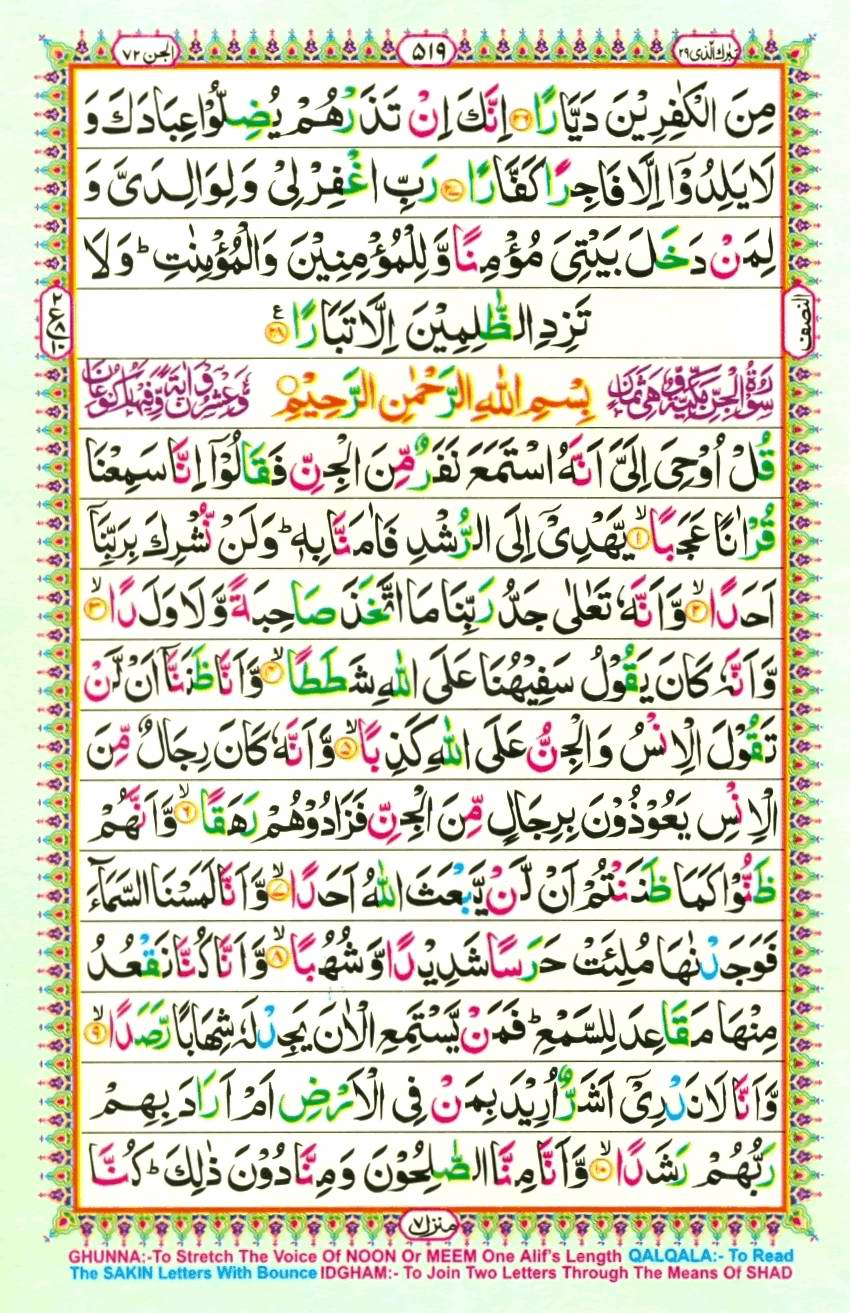 تبٰرك الذی ۲۹
۵۱۹
الجن ۷۲
مِنَ الْكٰفِرِيْنَ دَيَّارًا ﴿۲۶﴾ اِنَّكَ اِنْ تَذَرْهُمْ يُضِلُّوْا عِبَادَكَ وَ
لَا يَلِدُوْٓا اِلَّا فَاجِرًا كَفَّارًا ﴿۲۷﴾ رَبِّ اغْفِرْ لِيْ وَلِوَالِدَيَّ وَ
لِمَنْ دَخَلَ بَيْتِيَ مُؤْمِنًا وَّلِلْمُؤْمِنِيْنَ وَالْمُؤْمِنٰتِ ؕ وَلَا
تَزِدِ الظّٰلِمِيْنَ اِلَّا تَبَارًا ﴿۲۸﴾ ع
النصف
۲ ع ۸ ۱۰
سُوْرَةُ الْجِنِّ مَكِّيَّةٌ وَّهِيَ ثَمَانٍ بِسْمِ اللّٰهِ الرَّحْمٰنِ الرَّحِيْمِ وَّعِشْرُوْنَ اٰيَةً وَّفِيْهَا رُكُوْعَانِ
قُلْ اُوْحِيَ اِلَيَّ اَنَّهُ اسْتَمَعَ نَفَرٌ مِّنَ الْجِنِّ فَقَالُوْٓا اِنَّا سَمِعْنَا
قُرْاٰنًا عَجَبًا ﴿۱﴾ۙ يَّهْدِيْٓ اِلَى الرُّشْدِ فَاٰمَنَّا بِهٖ ؕ وَلَنْ نُّشْرِكَ بِرَبِّنَآ
اَحَدًا ﴿۲﴾ۙ وَّاَنَّهٗ تَعٰلٰى جَدُّ رَبِّنَا مَا اتَّخَذَ صَاحِبَةً وَّلَا وَلَدًا ﴿۳﴾ۙ
وَّاَنَّهٗ كَانَ يَقُوْلُ سَفِيْهُنَا عَلَى اللّٰهِ شَطَطًا ﴿۴﴾ۙ وَّاَنَّا ظَنَنَّآ اَنْ لَّنْ
تَقُوْلَ الْاِنْسُ وَالْجِنُّ عَلَى اللّٰهِ كَذِبًا ﴿۵﴾ۙ وَّاَنَّهٗ كَانَ رِجَالٌ مِّنَ
الْاِنْسِ يَعُوْذُوْنَ بِرِجَالٍ مِّنَ الْجِنِّ فَزَادُوْهُمْ رَهَقًا ﴿۶﴾ۙ وَّاَنَّهُمْ
ظَنُّوْا كَمَا ظَنَنْتُمْ اَنْ لَّنْ يَّبْعَثَ اللّٰهُ اَحَدًا ﴿۷﴾ۙ وَّاَنَّا لَمَسْنَا السَّمَآءَ
فَوَجَدْنٰهَا مُلِئَتْ حَرَسًا شَدِيْدًا وَّشُهُبًا ﴿۸﴾ۙ وَّاَنَّا كُنَّا نَقْعُدُ
مِنْهَا مَقَاعِدَ لِلسَّمْعِ ؕ فَمَنْ يَّسْتَمِعِ الْاٰنَ يَجِدْ لَهٗ شِهَابًا رَّصَدًا ﴿۹﴾ۙ
وَّاَنَّا لَا نَدْرِيْٓ اَشَرٌّ اُرِيْدَ بِمَنْ فِي الْاَرْضِ اَمْ اَرَادَ بِهِمْ
رَبُّهُمْ رَشَدًا ﴿۱۰﴾ۙ وَّاَنَّا مِنَّا الصّٰلِحُوْنَ وَمِنَّا دُوْنَ ذٰلِكَ ؕ كُنَّا
منزل ۷
GHUNNA:-To Stretch The Voice Of NOON Or MEEM One Alif's Length QALQALA:- To Read
The SAKIN Letters With Bounce IDGHAM:- To Join Two Letters Through The Means Of SHAD